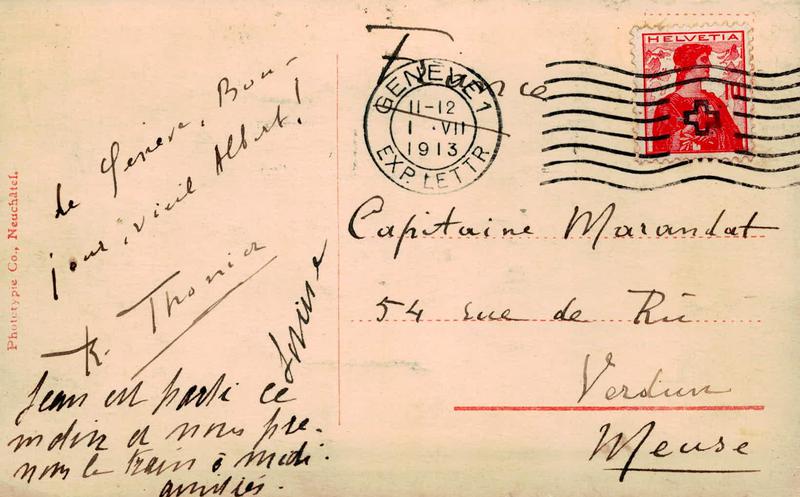 Phototypie Co., Neuchâtel.
de Genève. Bon-
jour, vieil Albert!
R. Thonier
Jean est parti ce
matin et nous pre-
nons le train à midi.
amitiés.
France
HELVETIA
GENÈVE 1
11-12
1 ·VII
1913
EXP. LETTR.
Capitaine Marandat
54 rue de Rû
Verdun
Meuse